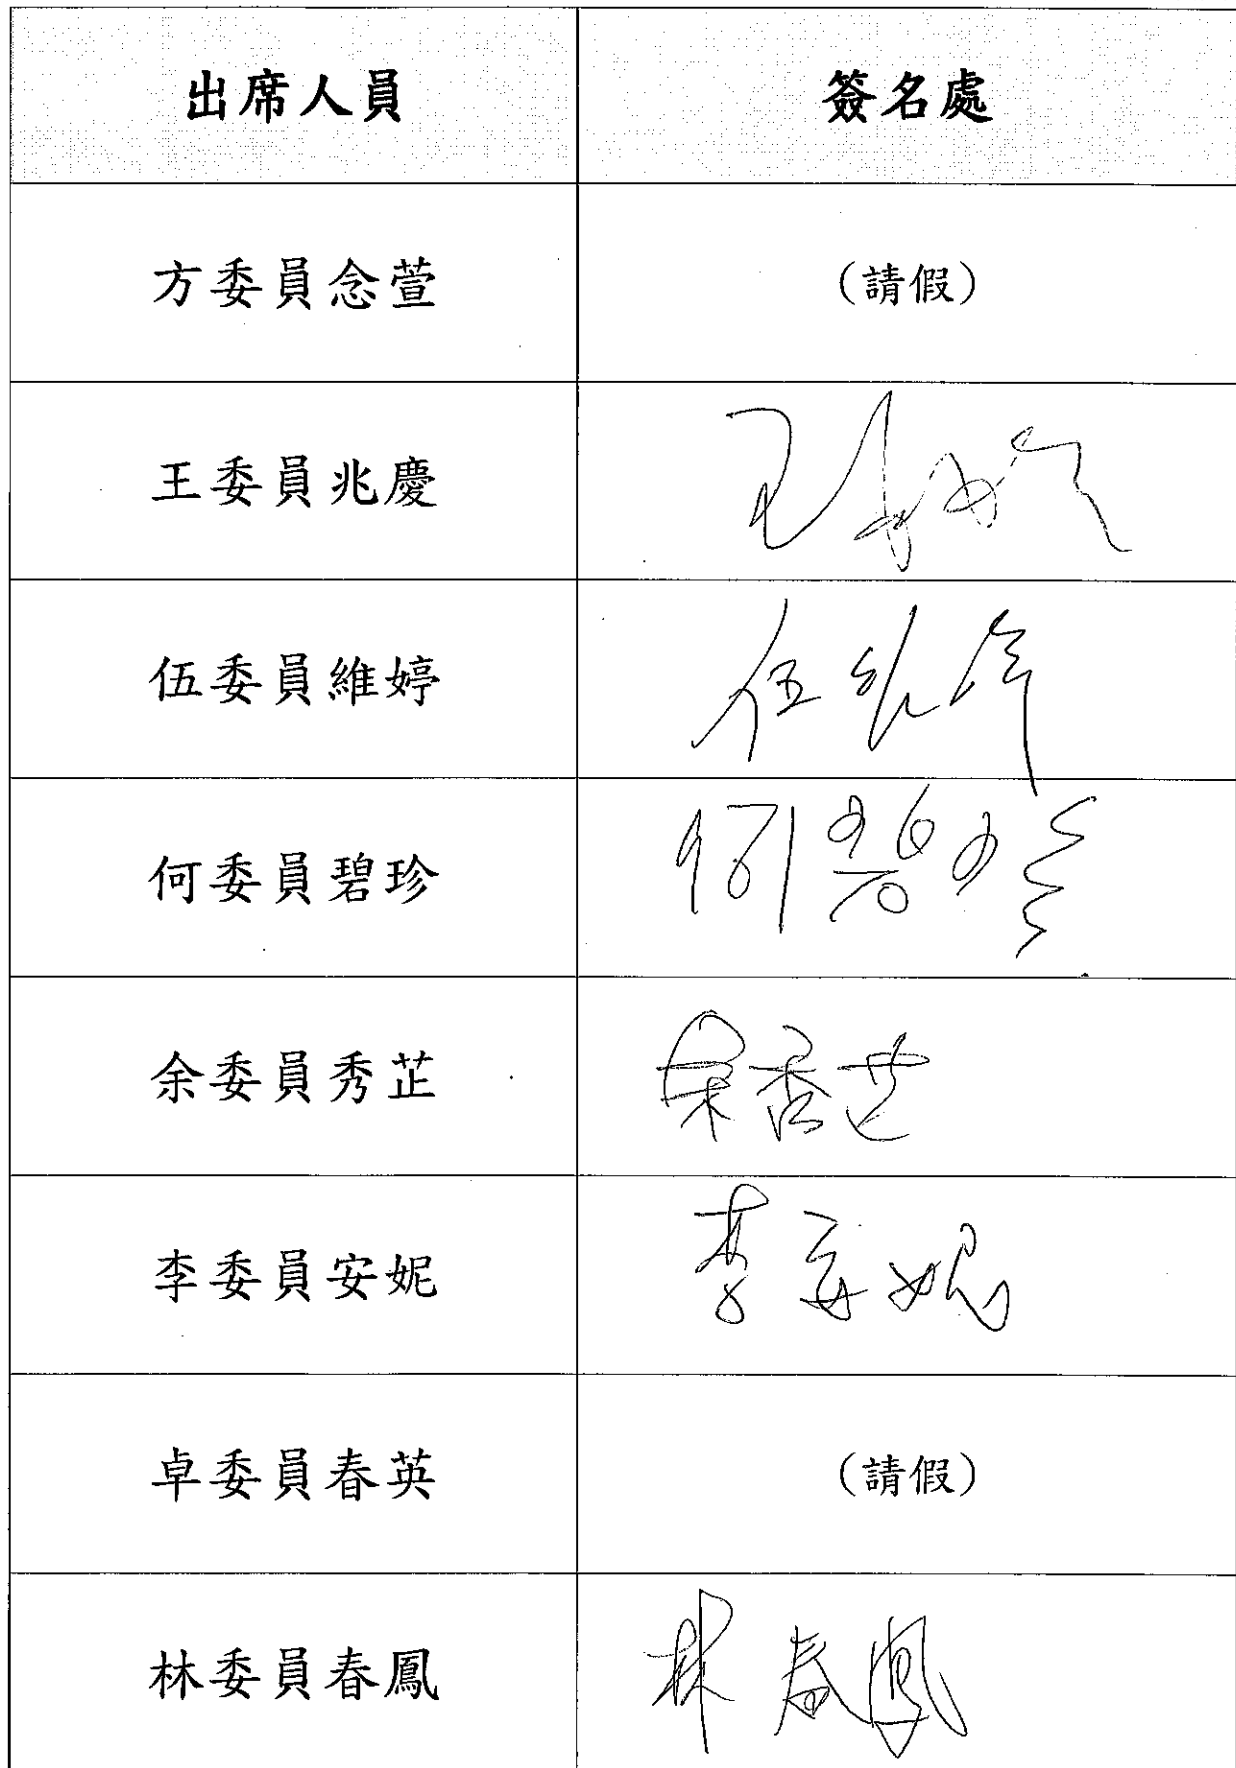 出席人員 簽名處
方委員念萱 (請假)
王委員兆慶
伍委員維婷 伍維婷
何委員碧珍 何碧珍
余委員秀芷 余秀芷
李委員安妮 李安妮
卓委員春英 (請假)
林委員春鳳 林春鳳